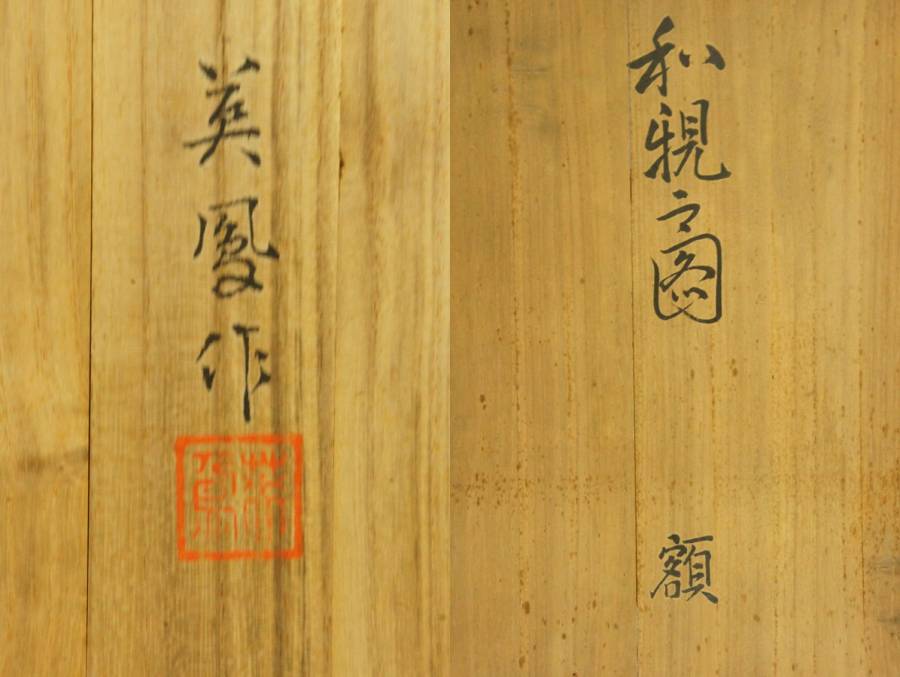 英鳳作
和親之圖
額